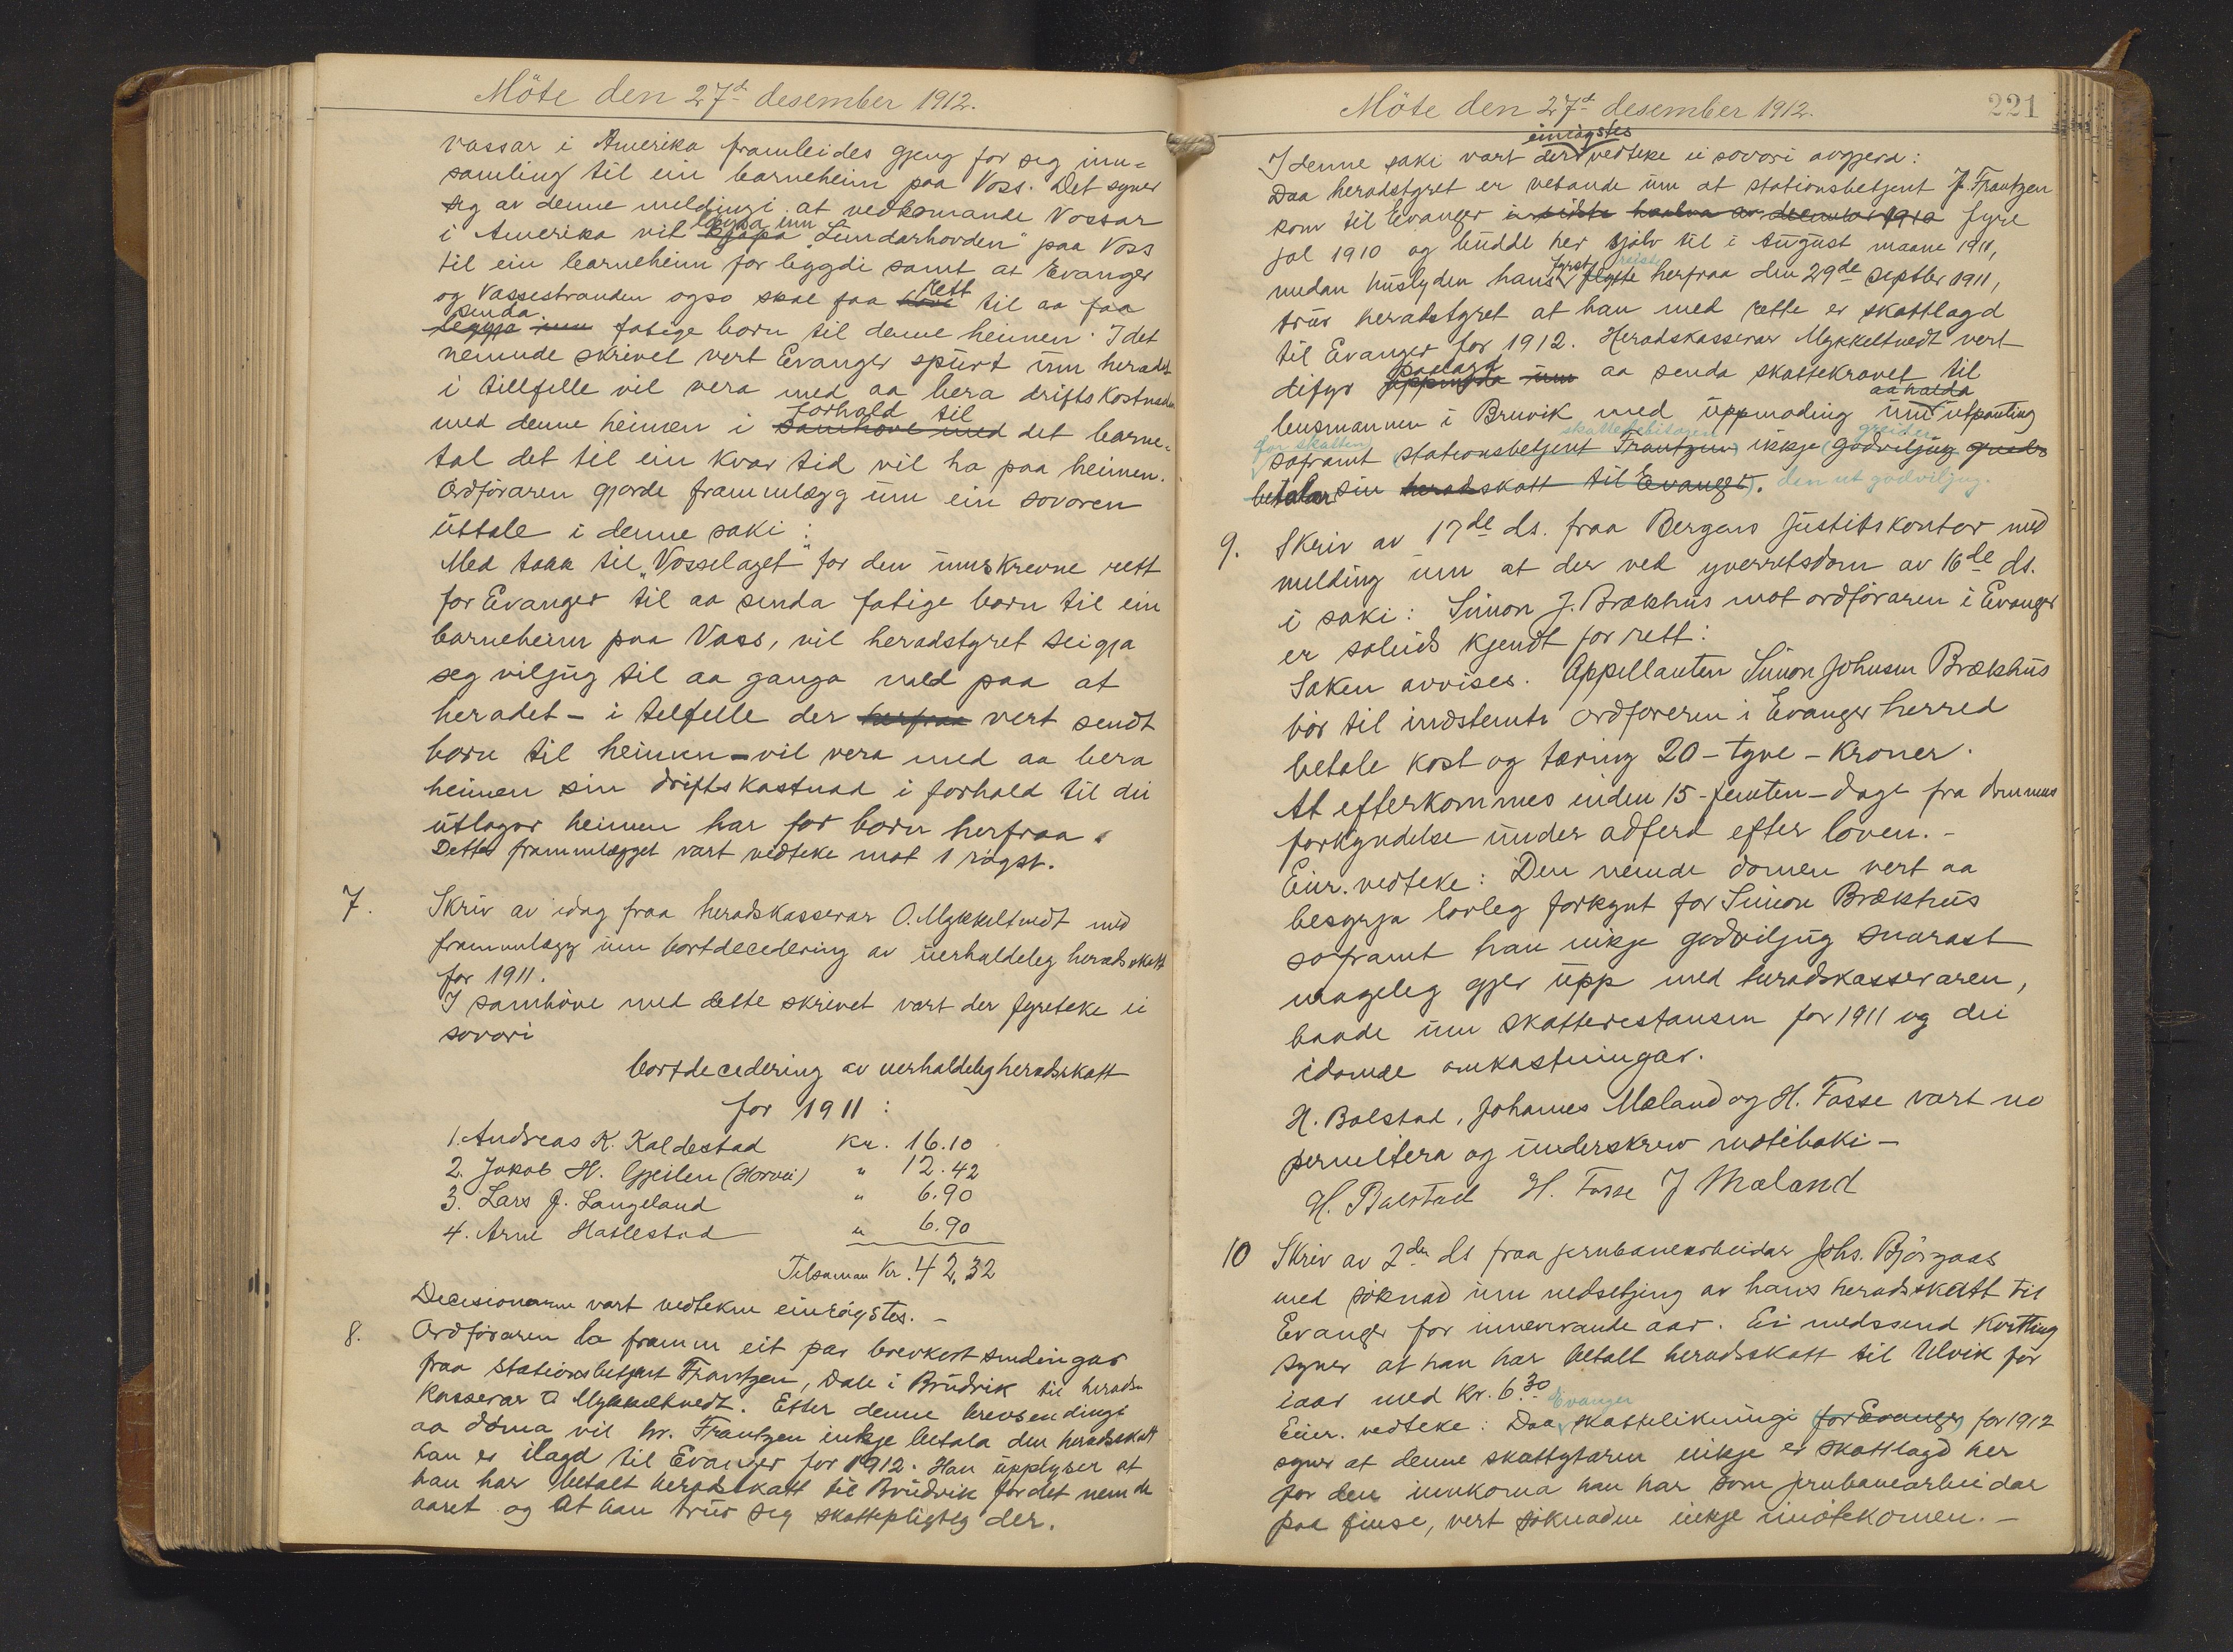 Möte den 27d desember 1912.
vassar i Amerika framleides gjeng for seg inn=
samling til ein barneheim paa Voss. Det syner
seg av denne meldingi at vedkomande Vossar
i Amerika vil kjöpa löysa inn "Lindarhovden" paa Voss
til ein barneheim for bygdi samt at Evanger
og Vassestranden ogso skal faa rett til aa faa
leggja inn senda fatige born til denne heimen. I det
nemnde skrivet vert Evanger spurt um heradet
i tillfelle vil vera med aa bera driftskostnaden
med denne heimen i samhöve med forhald til det barne=
tal det til ein kvar tid vil ha paa heimen.
Ordföraren gjorde frammlegg um ein sovoren
uttale i denne saki:
Med takk til "Vosselaget" for den umskrevne rett
for Evanger til aa senda fatige born til ein
barneheim paa Vass, vil heradstyret seigja
seg viljug til aa ganga med paa at
heradet - i tilfelle der herfraa vert sendt
born til heimen - vil vera med aa bera
heimen sin driftskastnad i forhald til dei
utlagor heimen har for born herfraa.
Dette frammlegget vart vedteke mot 1 röyst.
7. Skriv av idag fraa heradskasserar O. Mykkeltvedt med
frammlegg um bortdecedering av uerhaldeleg heradsskatt
for 1911.
I samhöve med dette skrivet vart der fyreteke ei
sovori
bortdecedering av uerhaldeleg heradsskatt
for 1911:
1. Andreas K. Kaldestad Kr. 16.10
2. Jakob H. Gjeilen (Horvei) " 12.42
3. Lars J. Langeland " 6.90
4. Arne Hatlestad " 6.90
Tilsaman Kr. 42,32
Decisionarne vart vedtekne einröystes. -
8. Ordföraren la framm eit par brevkort sendingar
fraa stationsbetjent Frantzen, Dale i Brudvik til herads-
kasserar O Mykkeltvedt. Etter denne brevsendingi
aa döma vil hr. Frantzen inkje betala den heradsskatt
han er ilagd til Evanger for 1912. Han upplyser at
han har betalt heradsskatt til Brudvik for det nemnde
aaret og at han trur seg skattepligtig der.
Möte den 27d desember 1912. 221
I denne saki vart der einröystes vedteke ei sovori avgjerd:
Daa heradstyret er vetande um at stationsbetjent J. Frantzen
kom til Evanger i sidste halva av december 1910 fyre
jol 1910 og budde her sjölv til i August maane 1911,
medan huslyden hans fyrst flytte reiste herfraa den 29de septbr 1911,
trur heradstyret at han med rette er skattlagd
til Evanger for 1912. Heradskasserar Mykkeltvedt vert
difyr uppmoda um paalagt aa senda skattekravet til
lensmannen i Bruvik med uppmoding um aa halda utpanting
for skatten soframt stationsbetjent Frantzen skattebetalaren ikkje godviljug greider
betalar sin heradsskatt til Evanger. den ut godviljug.
9. Skriv av 17de ds. fraa Bergens Justitskontor med
melding um at der ved yverrettsdom av 16de ds.
i saki: Simon J. Brækhus mot ordföraren i Evanger
er soleids kjendt for rett:
Saken avvises. Appellanten Simon Johnsen Brækhus
bör til indstevnte Ordföreren i Evanger herred
betale kost og tæring 20 - tyve - kroner.
At efterkommes inden 15 - femten - dage fra dommens
forkyndelse under adferd efter loven. -
Einr. vedteke: Den nemde domen vert aa
besyrja lovleg forkynt for Simon Brækhus
soframt han inkje godviljug snarast
mogeleg gjer upp med heradskasseraren,
baade um skatterestansen for 1911 og dei
idømde omkastningar.
H. Bolstad, Johannes Mæland og H. Fasse vart no
permitera og underskrev moteboki -
H. Bolstad H. Fosse J Mæland
10 Skriv av 2den ds fraa jernbanearbeidar Johs. Björgaas
med söknad um nedsetjing av hans heradsskatt til
Evanger for inneverande aar. Ei medsend kvitting
syner at han har betalt heradsskatt til Ulvik for
iaar med kr. 6.30
Einr. vedteke: Daa Evanger skattelikningi for Evanger for 1912
syner at denne skattytaren inkje er skattlagd her
for den innkoma han har som jernbanearbeidar
paa Finse, vert söknaden inkje imötekomen. -